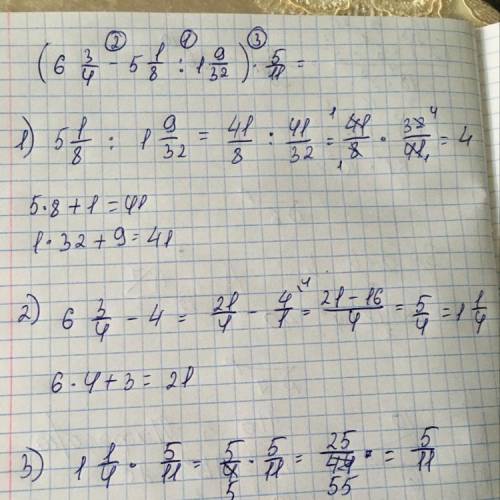 (6 3/4 - 5 1/8 : 1 9/32) · 5/11 =
② ① ③
1) 5 1/8 : 1 9/32 = 41/8 : 41/32 = 41/8 · 32/41 = 4
1 4
1 1
5·8+1=41
1·32+9=41
2) 6 3/4 - 4 = 21/4 - 4/1 = (21-16)/4 = 5/4 = 1 1/4
4
6·4+3=21
3) 1 1/4 · 5/11 = 5/4 · 5/11 = 25/44 = 5/11
5 55